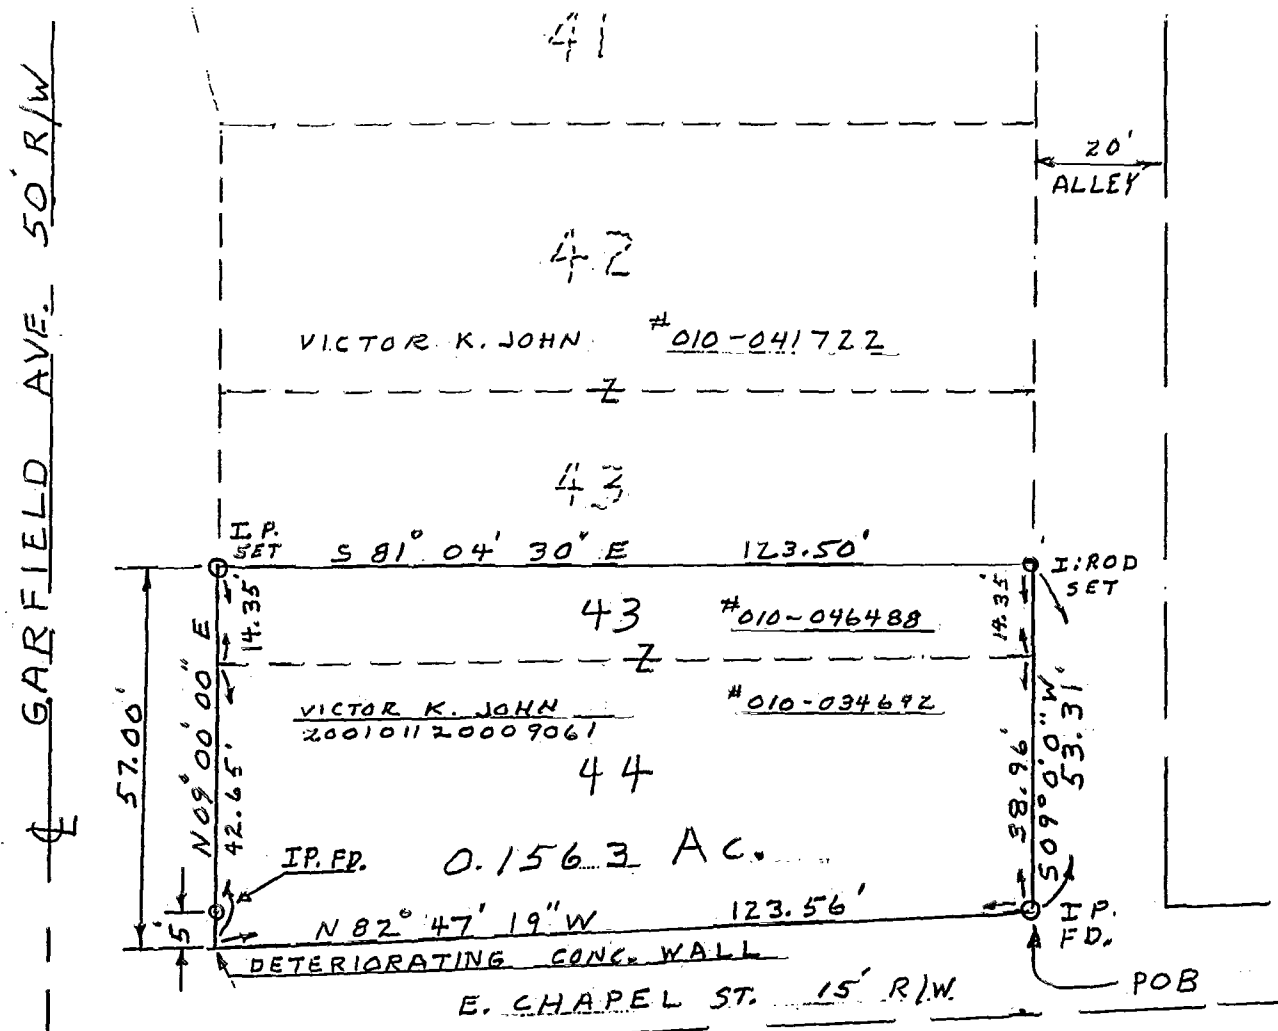 41
GARFIELD AVE. 50' R/W
20'
ALLEY
42
VICTOR K. JOHN #010-041722
Z
43
I.P.
SET
S 81° 04' 30" E 123.50'
I.ROD
SET
14.35'
43 #010-046488
14.35'
Z
N 09° 00' 00" E
57.00'
VICTOR K. JOHN
200101120009061
#010-034692
44
42.65'
38.96'
S 09° 0' 0" W
53.31'
I.P. FD.
0.1563 Ac.
5'
N 82° 47' 19" W 123.56'
I.P.
FD.
DETERIORATING CONC. WALL
E. CHAPEL ST. 15' R/W.
POB